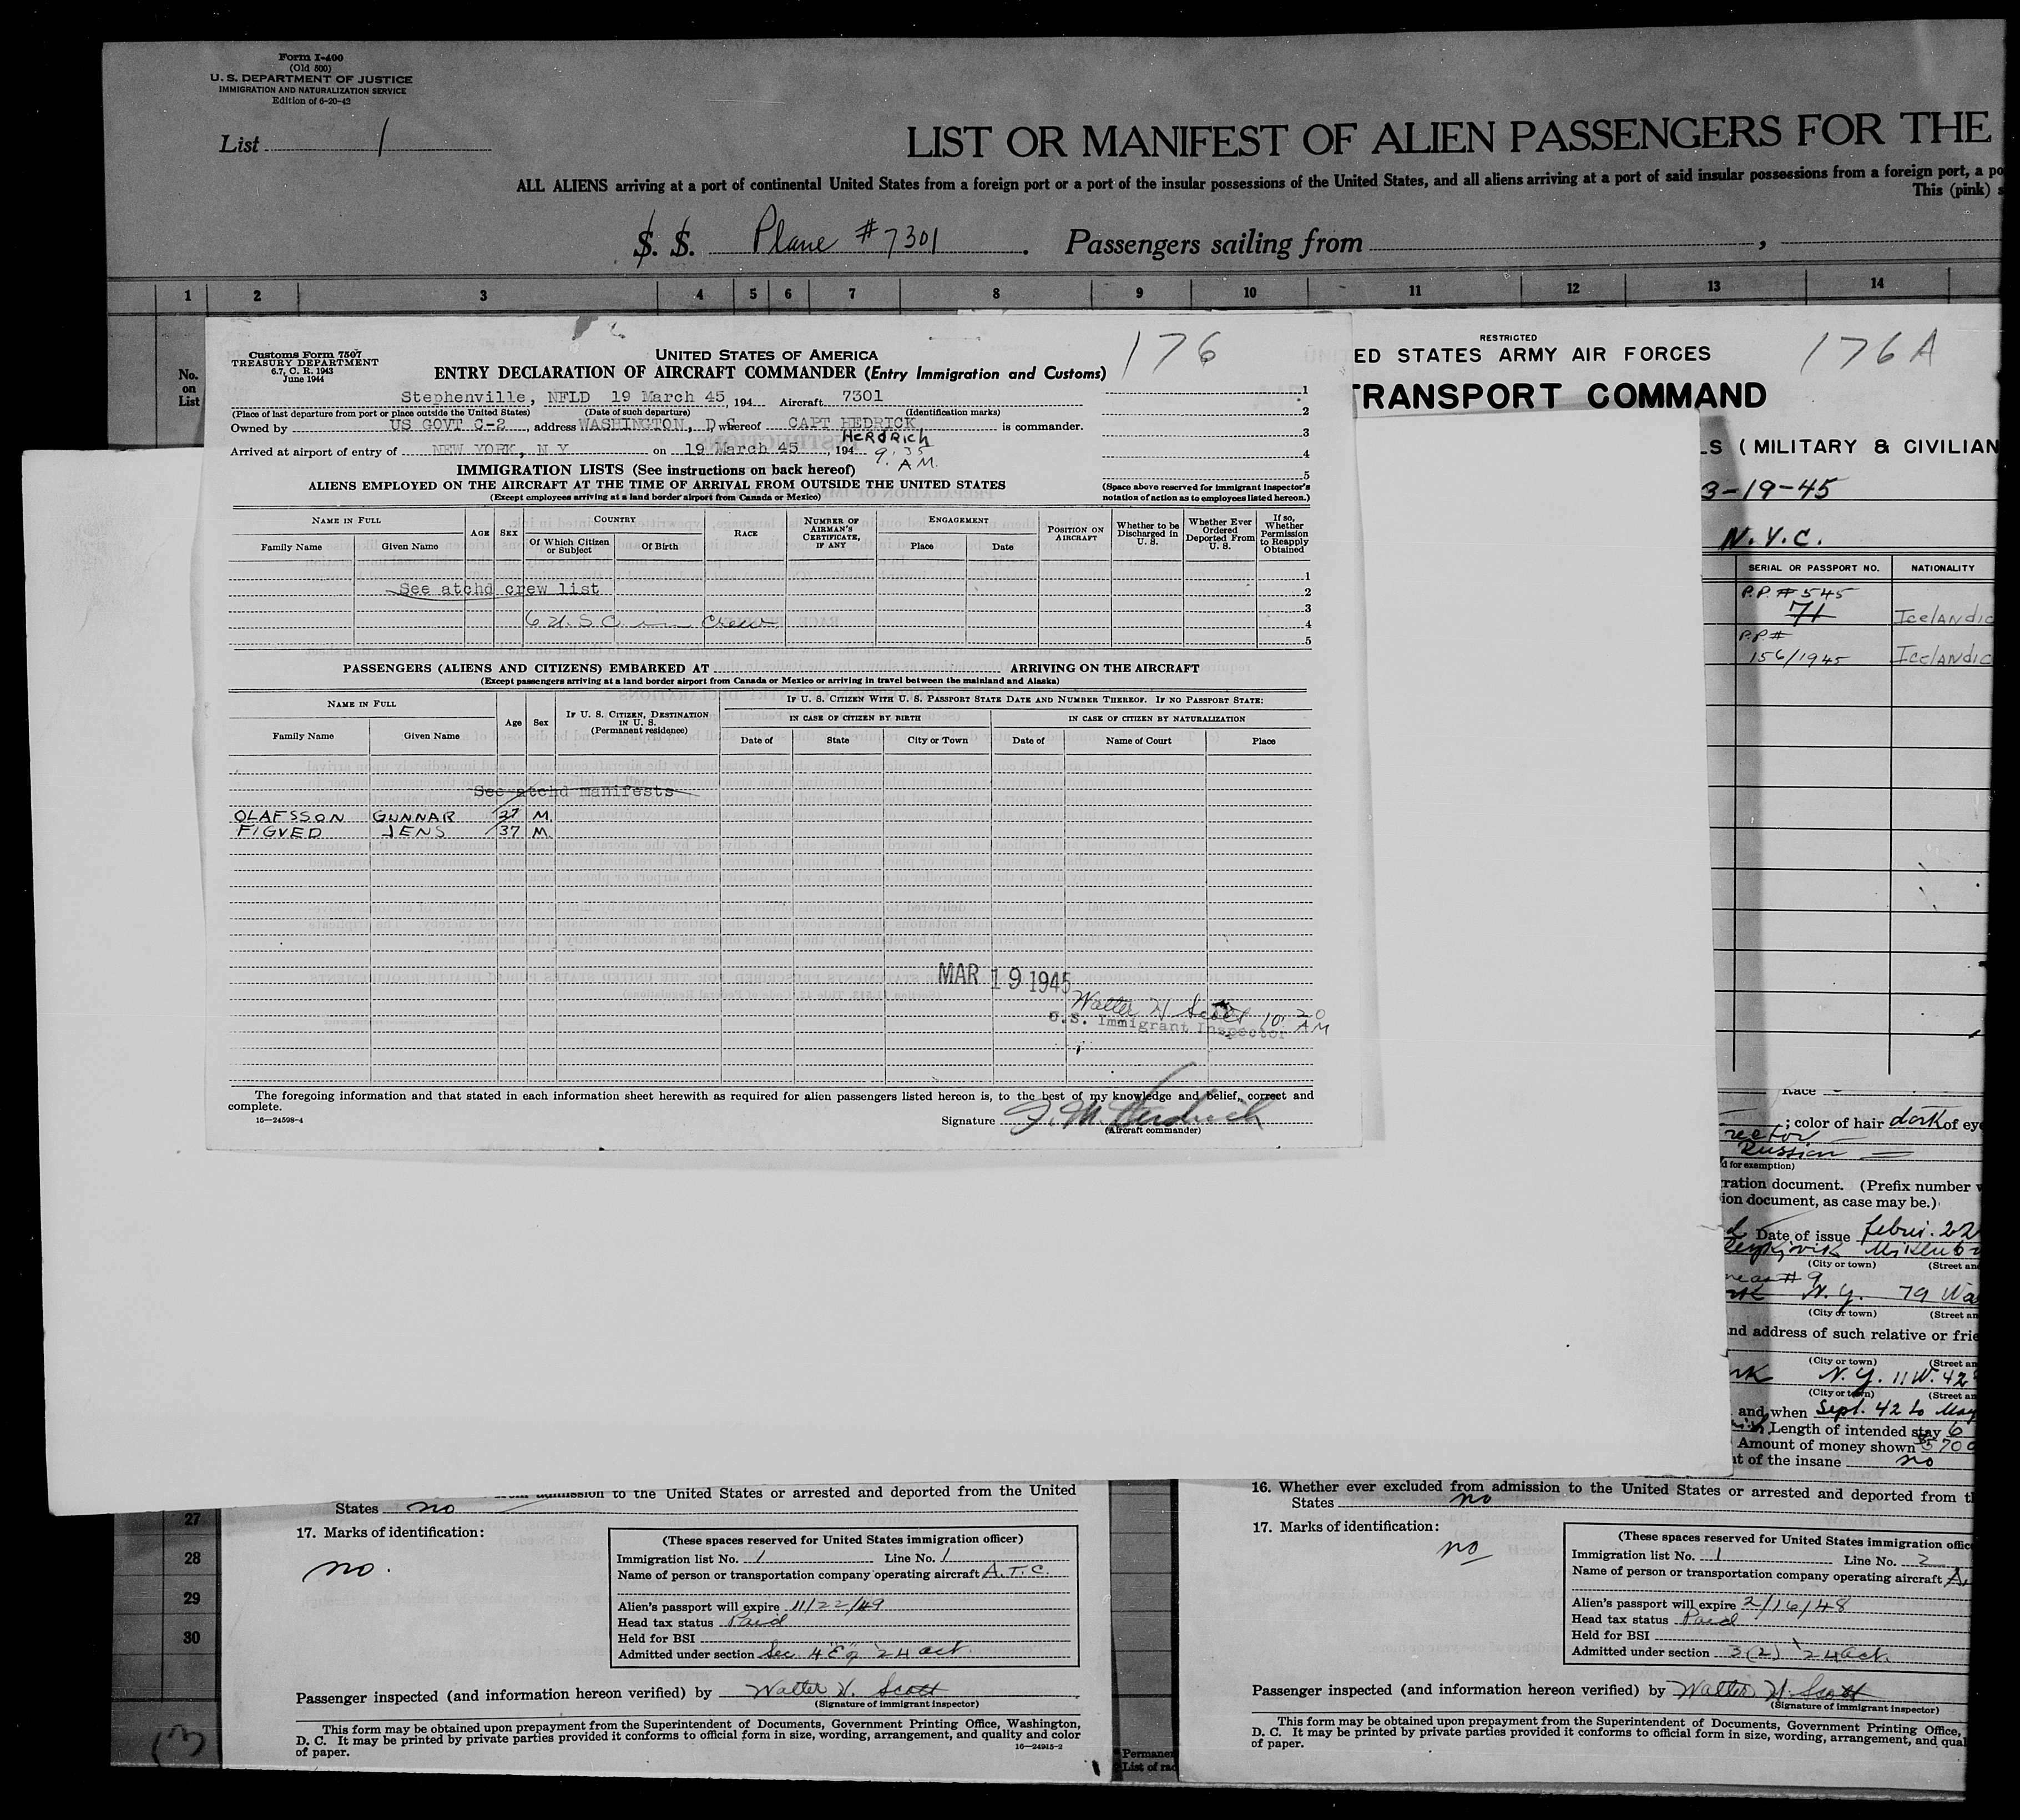 Form I-400
(Old 500)
U. S. DEPARTMENT OF JUSTICE
IMMIGRATION AND NATURALIZATION SERVICE
Edition of 6-20-43
List 1
LIST OR MANIFEST OF ALIEN PASSENGERS FOR THE
ALL ALIENS arriving at a port of continental United States from a foreign port or a port of the insular possessions of the United States, and all aliens arriving at a port of said insular possessions from a foreign port, a po
This (pink) s
S. S. Plane #7301. Passengers sailing from ,
1 2 3 4 5 6 7 8 9 10 11 12 13 14
No. on List
Customs Form 7507
TREASURY DEPARTMENT
6.7, C. R. 1943
June 1944
UNITED STATES OF AMERICA
176
ENTRY DECLARATION OF AIRCRAFT COMMANDER (Entry Immigration and Customs)
Stephenville, NFLD 19 March 45, 194 Aircraft 7301
(Place of last departure from port or place outside the United States) (Date of such departure) (Identification marks)
Owned by US GOVT C-2, address WASHINGTON, D C whereof CAPT HEDRICK is commander.
HERDRICH
Arrived at airport of entry of NEW YORK, N Y on 19 March 45, 194 9:35 AM.
IMMIGRATION LISTS (See instructions on back hereof)
ALIENS EMPLOYED ON THE AIRCRAFT AT THE TIME OF ARRIVAL FROM OUTSIDE THE UNITED STATES
(Except employees arriving at a land border airport from Canada or Mexico)
1
2
3
4
5
(Space above reserved for immigrant inspector's notation of action as to employees listed hereon.)
NAME IN FULL AGE SEX COUNTRY RACE NUMBER OF AIRMAN'S CERTIFICATE, IF ANY ENGAGEMENT POSITION ON AIRCRAFT Whether to be Discharged in U. S. Whether Ever Ordered Deported From U. S. If so, Whether Permission to Reapply Obtained
Family Name Given Name Of Which Citizen or Subject Of Birth Place Date
1
See atchd crew list 2
3
6 U.S C in Crew 4
5
PASSENGERS (ALIENS AND CITIZENS) EMBARKED AT ARRIVING ON THE AIRCRAFT
(Except passengers arriving at a land border airport from Canada or Mexico or arriving in travel between the mainland and Alaska)
NAME IN FULL Age Sex IF U. S. CITIZEN, DESTINATION IN U. S. (Permanent residence) IF U. S. CITIZEN WITH U. S. PASSPORT STATE DATE AND NUMBER THEREOF. IF NO PASSPORT STATE:
IN CASE OF CITIZEN BY BIRTH IN CASE OF CITIZEN BY NATURALIZATION
Family Name Given Name Date of State City or Town Date of Name of Court Place
See atchd manifests
OLAFSSON GUNNAR M.
FIGVED JENS 37 M
MAR 19 1945
Walter H Scott 10:20 AM
U.S. Immigrant Inspector
The foregoing information and that stated in each information sheet herewith as required for alien passengers listed hereon is, to the best of my knowledge and belief, correct and
complete.
16—24598-4
Signature J. M. Herdrich
(Aircraft commander)
RESTRICTED
ED STATES ARMY AIR FORCES
176A
TRANSPORT COMMAND
LS (MILITARY & CIVILIAN
3-19-45
N.Y.C.
SERIAL OR PASSPORT NO. NATIONALITY
P.P. #545
71 Icelandic
P.P.#
156/1945 Icelandic
Race
; color of hair dark of eye
Russian
d for exemption)
ration document. (Prefix number
ion document, as case may be.)
Date of issue Febru. 22
(City or town) (Street an
N.Y. 79 Wa
(City or town) (Street an
nd address of such relative or frie
(City or town) (Street an
N.Y. 11 W. 42
(City or town) (Street an
and when Sept. 42 to May
Length of intended stay 6
Amount of money shown $700
t of the insane no
admission to the United States or arrested and deported from the United
States no
17. Marks of identification:
no.
(These spaces reserved for United States immigration officer)
Immigration list No. 1 Line No. 1
Name of person or transportation company operating aircraft A.T.C.
Alien's passport will expire 11/22/49
Head tax status Paid
Held for BSI
Admitted under section Sec. 4 "E" of 24 act.
Passenger inspected (and information hereon verified) by Walter H. Scott
(Signature of immigrant inspector)
This form may be obtained upon prepayment from the Superintendent of Documents, Government Printing Office, Washington,
D. C. It may be printed by private parties provided it conforms to official form in size, wording, arrangement, and quality and color
of paper.
16—24915-2
27
28
29
30
16. Whether ever excluded from admission to the United States or arrested and deported from t
States no
17. Marks of identification:
no
(These spaces reserved for United States immigration offic
Immigration list No. 1 Line No. 2
Name of person or transportation company operating aircraft A.
Alien's passport will expire 2/16/48
Head tax status Paid
Held for BSI
Admitted under section 3(2) 24 act.
Passenger inspected (and information hereon verified) by Walter H Scott
(Signature of immigrant inspector)
This form may be obtained upon prepayment from the Superintendent of Documents, Government Printing Office,
D. C. It may be printed by private parties provided it conforms to official form in size, wording, arrangement, and qual
of paper.
Permanen
List of rac